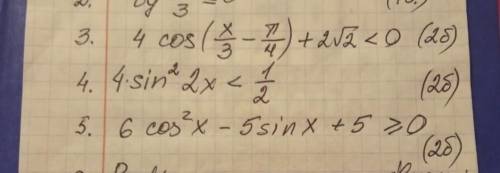 2.
3. 4 cos(x/3 − π/4) + 2√2 < 0 (2б)
4. 4·sin² 2x < 1/2 (2б)
5. 6 cos²x − 5 sin x + 5 ≥ 0
(2б)